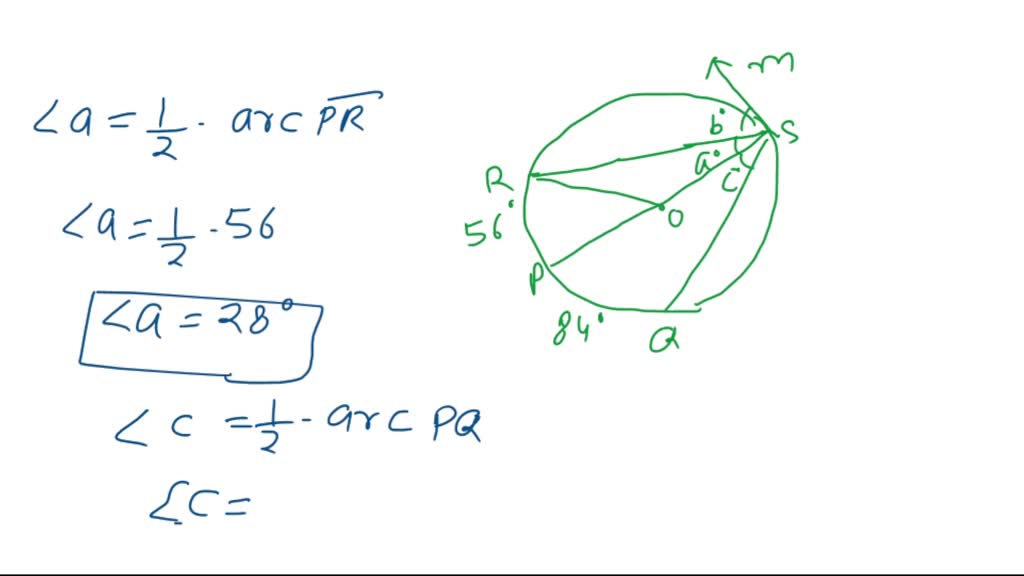 ∠a = 1/2 · arc P̅R̅
∠a = 1/2 · 56
∠a = 28°
∠c = 1/2 · arc PQ
∠c =
m
b°
S
a°
c
R
O
56°
P
84°
Q